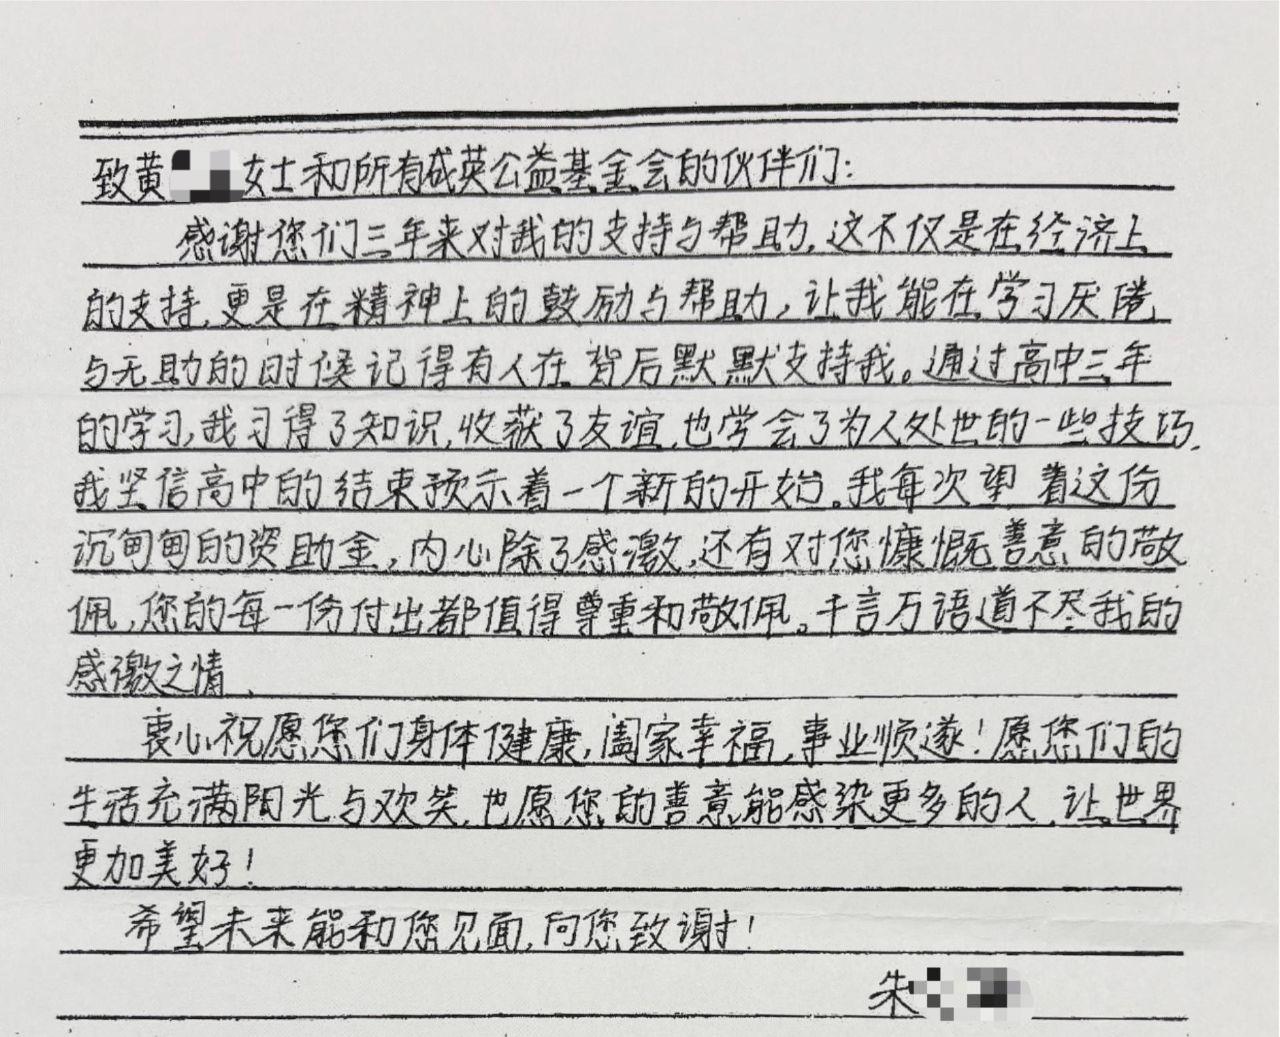 致黄 女士和所有成英公益基金会的伙伴们:
感谢您们三年来对我的支持与帮助,这不仅是在经济上
的支持,更是在精神上的鼓励与帮助,让我能在学习厌倦
与无助的时候记得有人在背后默默支持我。通过高中三年
的学习,我习得了知识,收获了友谊,也学会了为人处世的一些技巧,
我坚信高中的结束预示着一个新的开始。我每次望着这份
沉甸甸的资助金,内心除了感激,还有对您慷慨善意的敬
佩,您的每一份付出都值得尊重和敬佩。千言万语道不尽我的
感激之情.
衷心祝愿您们身体健康,阖家幸福,事业顺遂!愿您们的
生活充满阳光与欢笑,也愿您的善意能感染更多的人,让世界
更加美好!
希望未来能和您见面,向您致谢!
朱